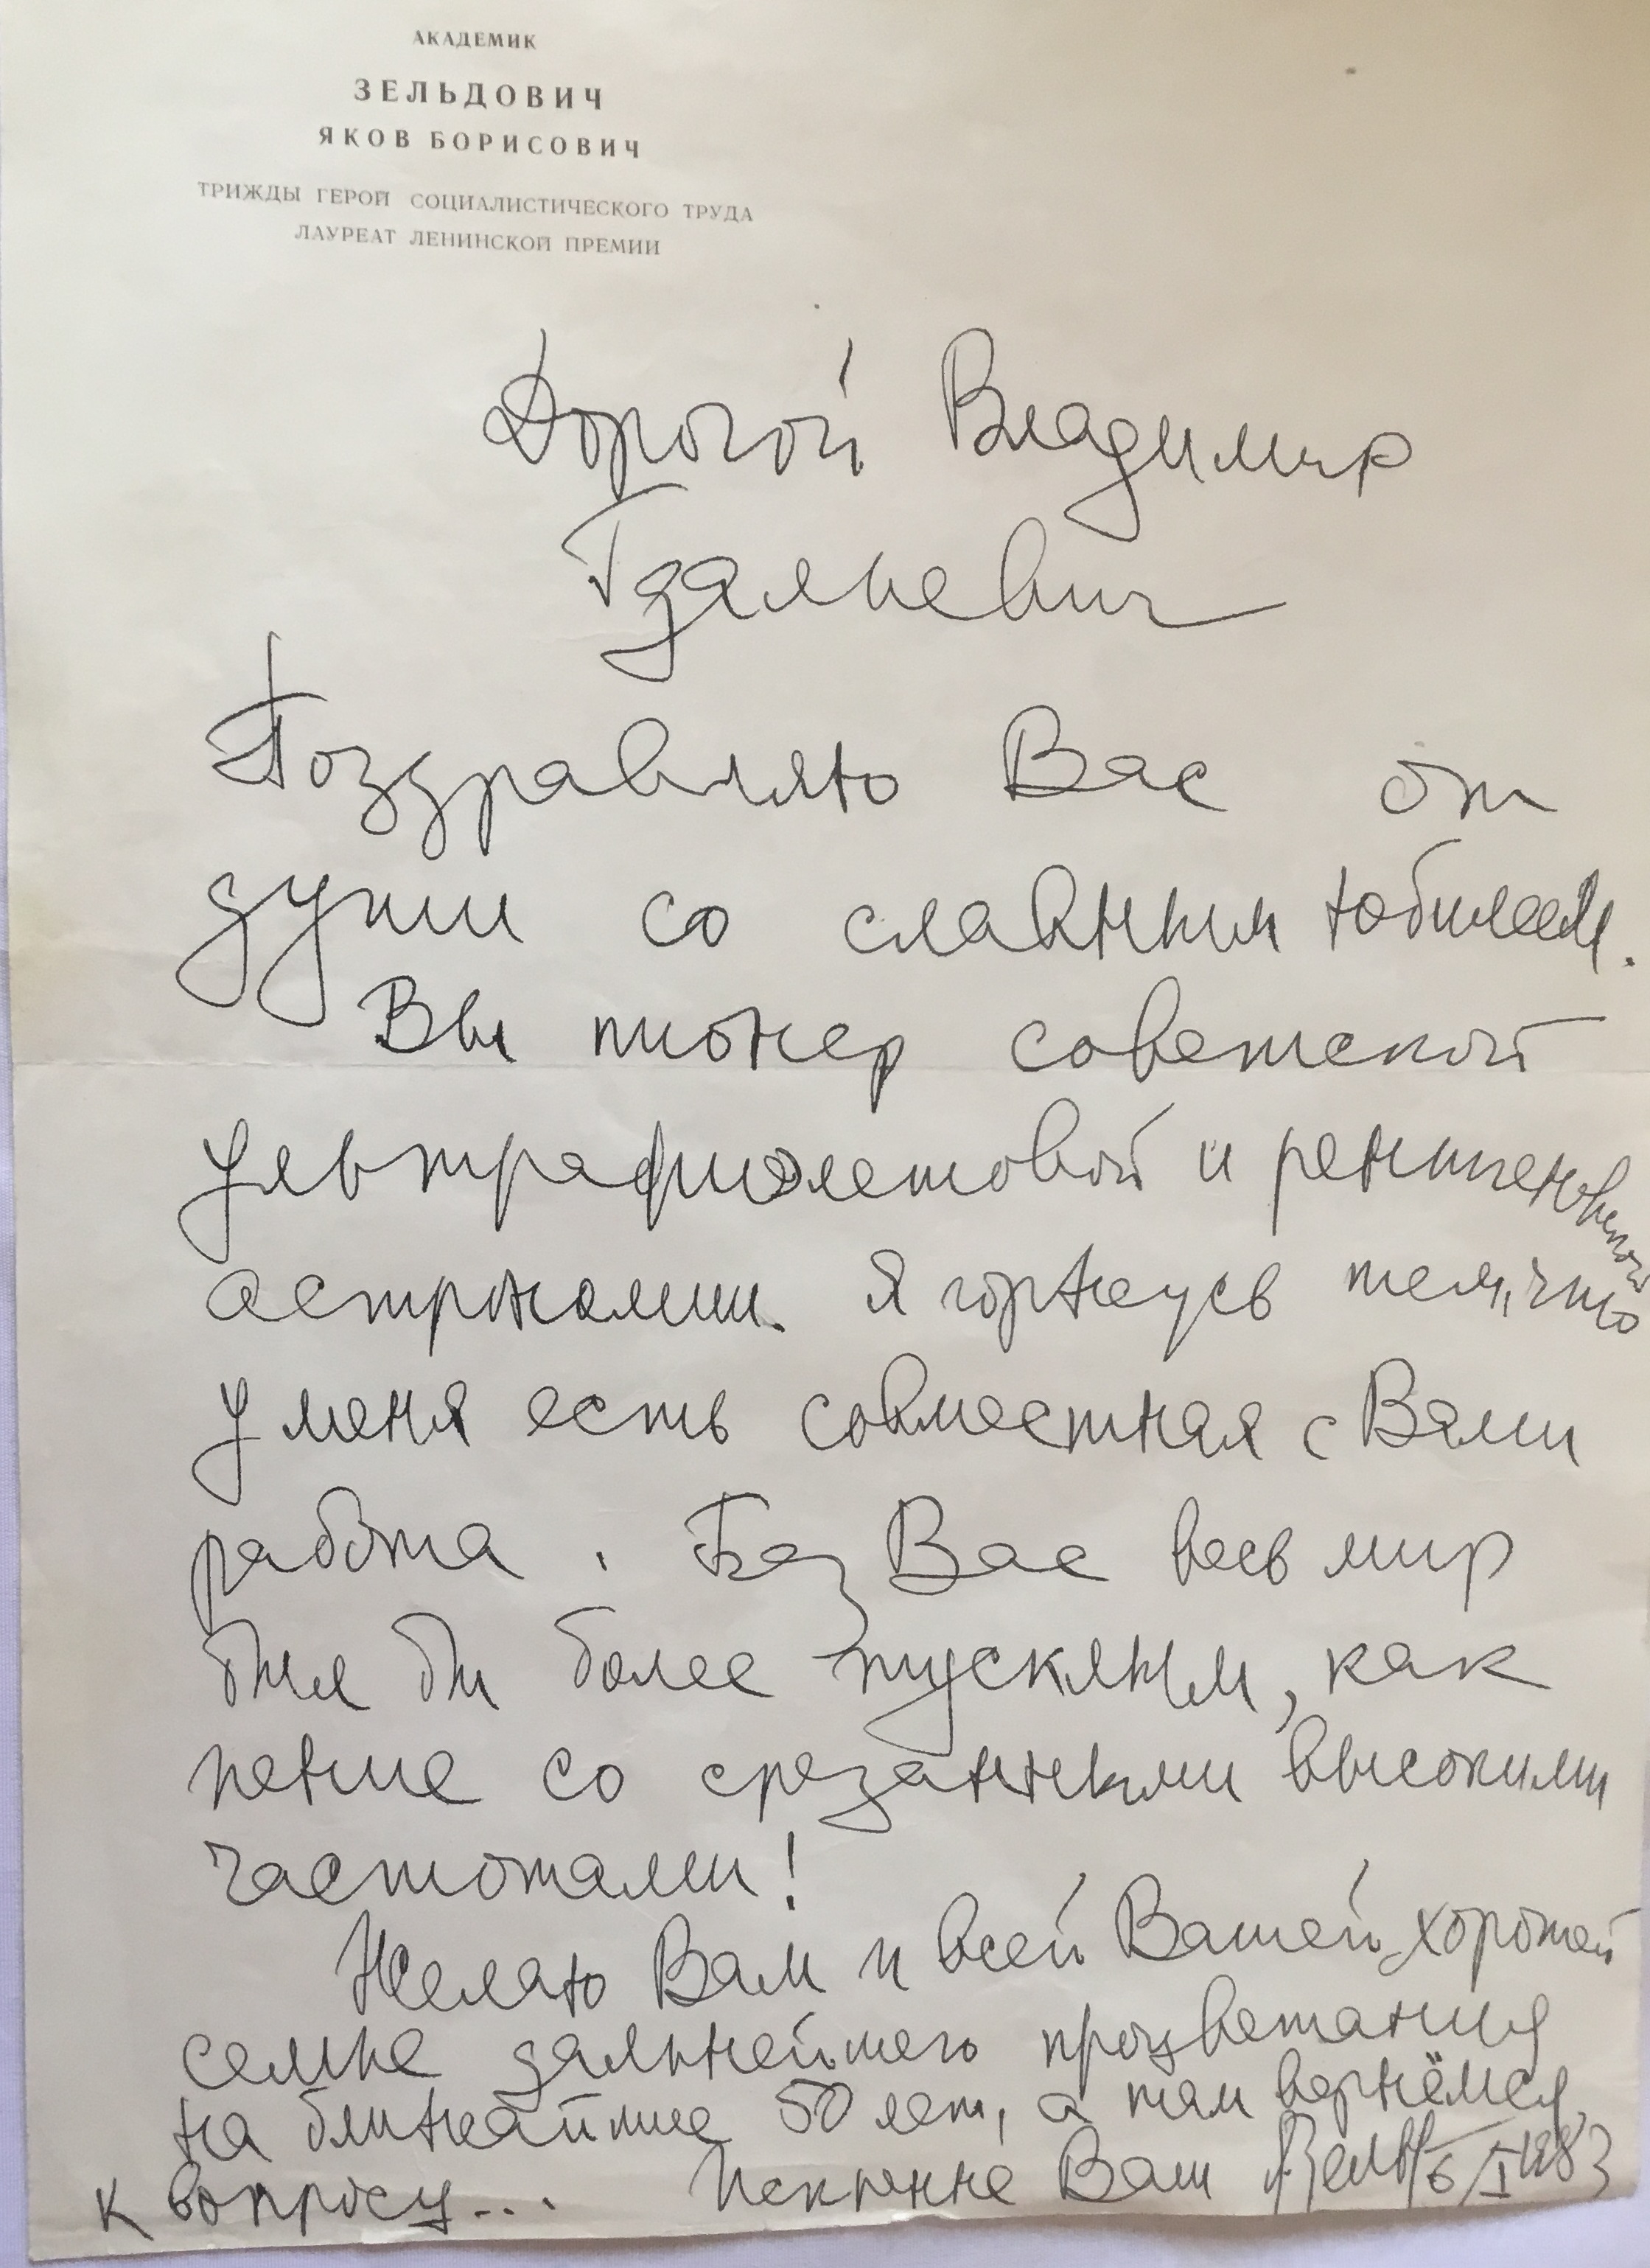 АКАДЕМИК
ЗЕЛЬДОВИЧ
ЯКОВ БОРИСОВИЧ
ТРИЖДЫ ГЕРОЙ СОЦИАЛИСТИЧЕСКОГО ТРУДА
ЛАУРЕАТ ЛЕНИНСКОЙ ПРЕМИИ
Дорогой Владимир
Гдальевич
Поздравляю Вас от
души со славным юбилеем.
Вы пионер советской
ультрафиолетовой и рентгеновской
астрономии. Я горжусь тем, что
у меня есть совместная с Вами
работа. Без Вас весь мир
был бы более тусклым, как
пение со срезанными высокими
частотами!
Желаю Вам и всей Вашей хорошей
семье дальнейшего процветания
на ближайшие 50 лет, а там вернёмся
к вопросу... Искренне Ваш ЯЗельд 6/I 1983